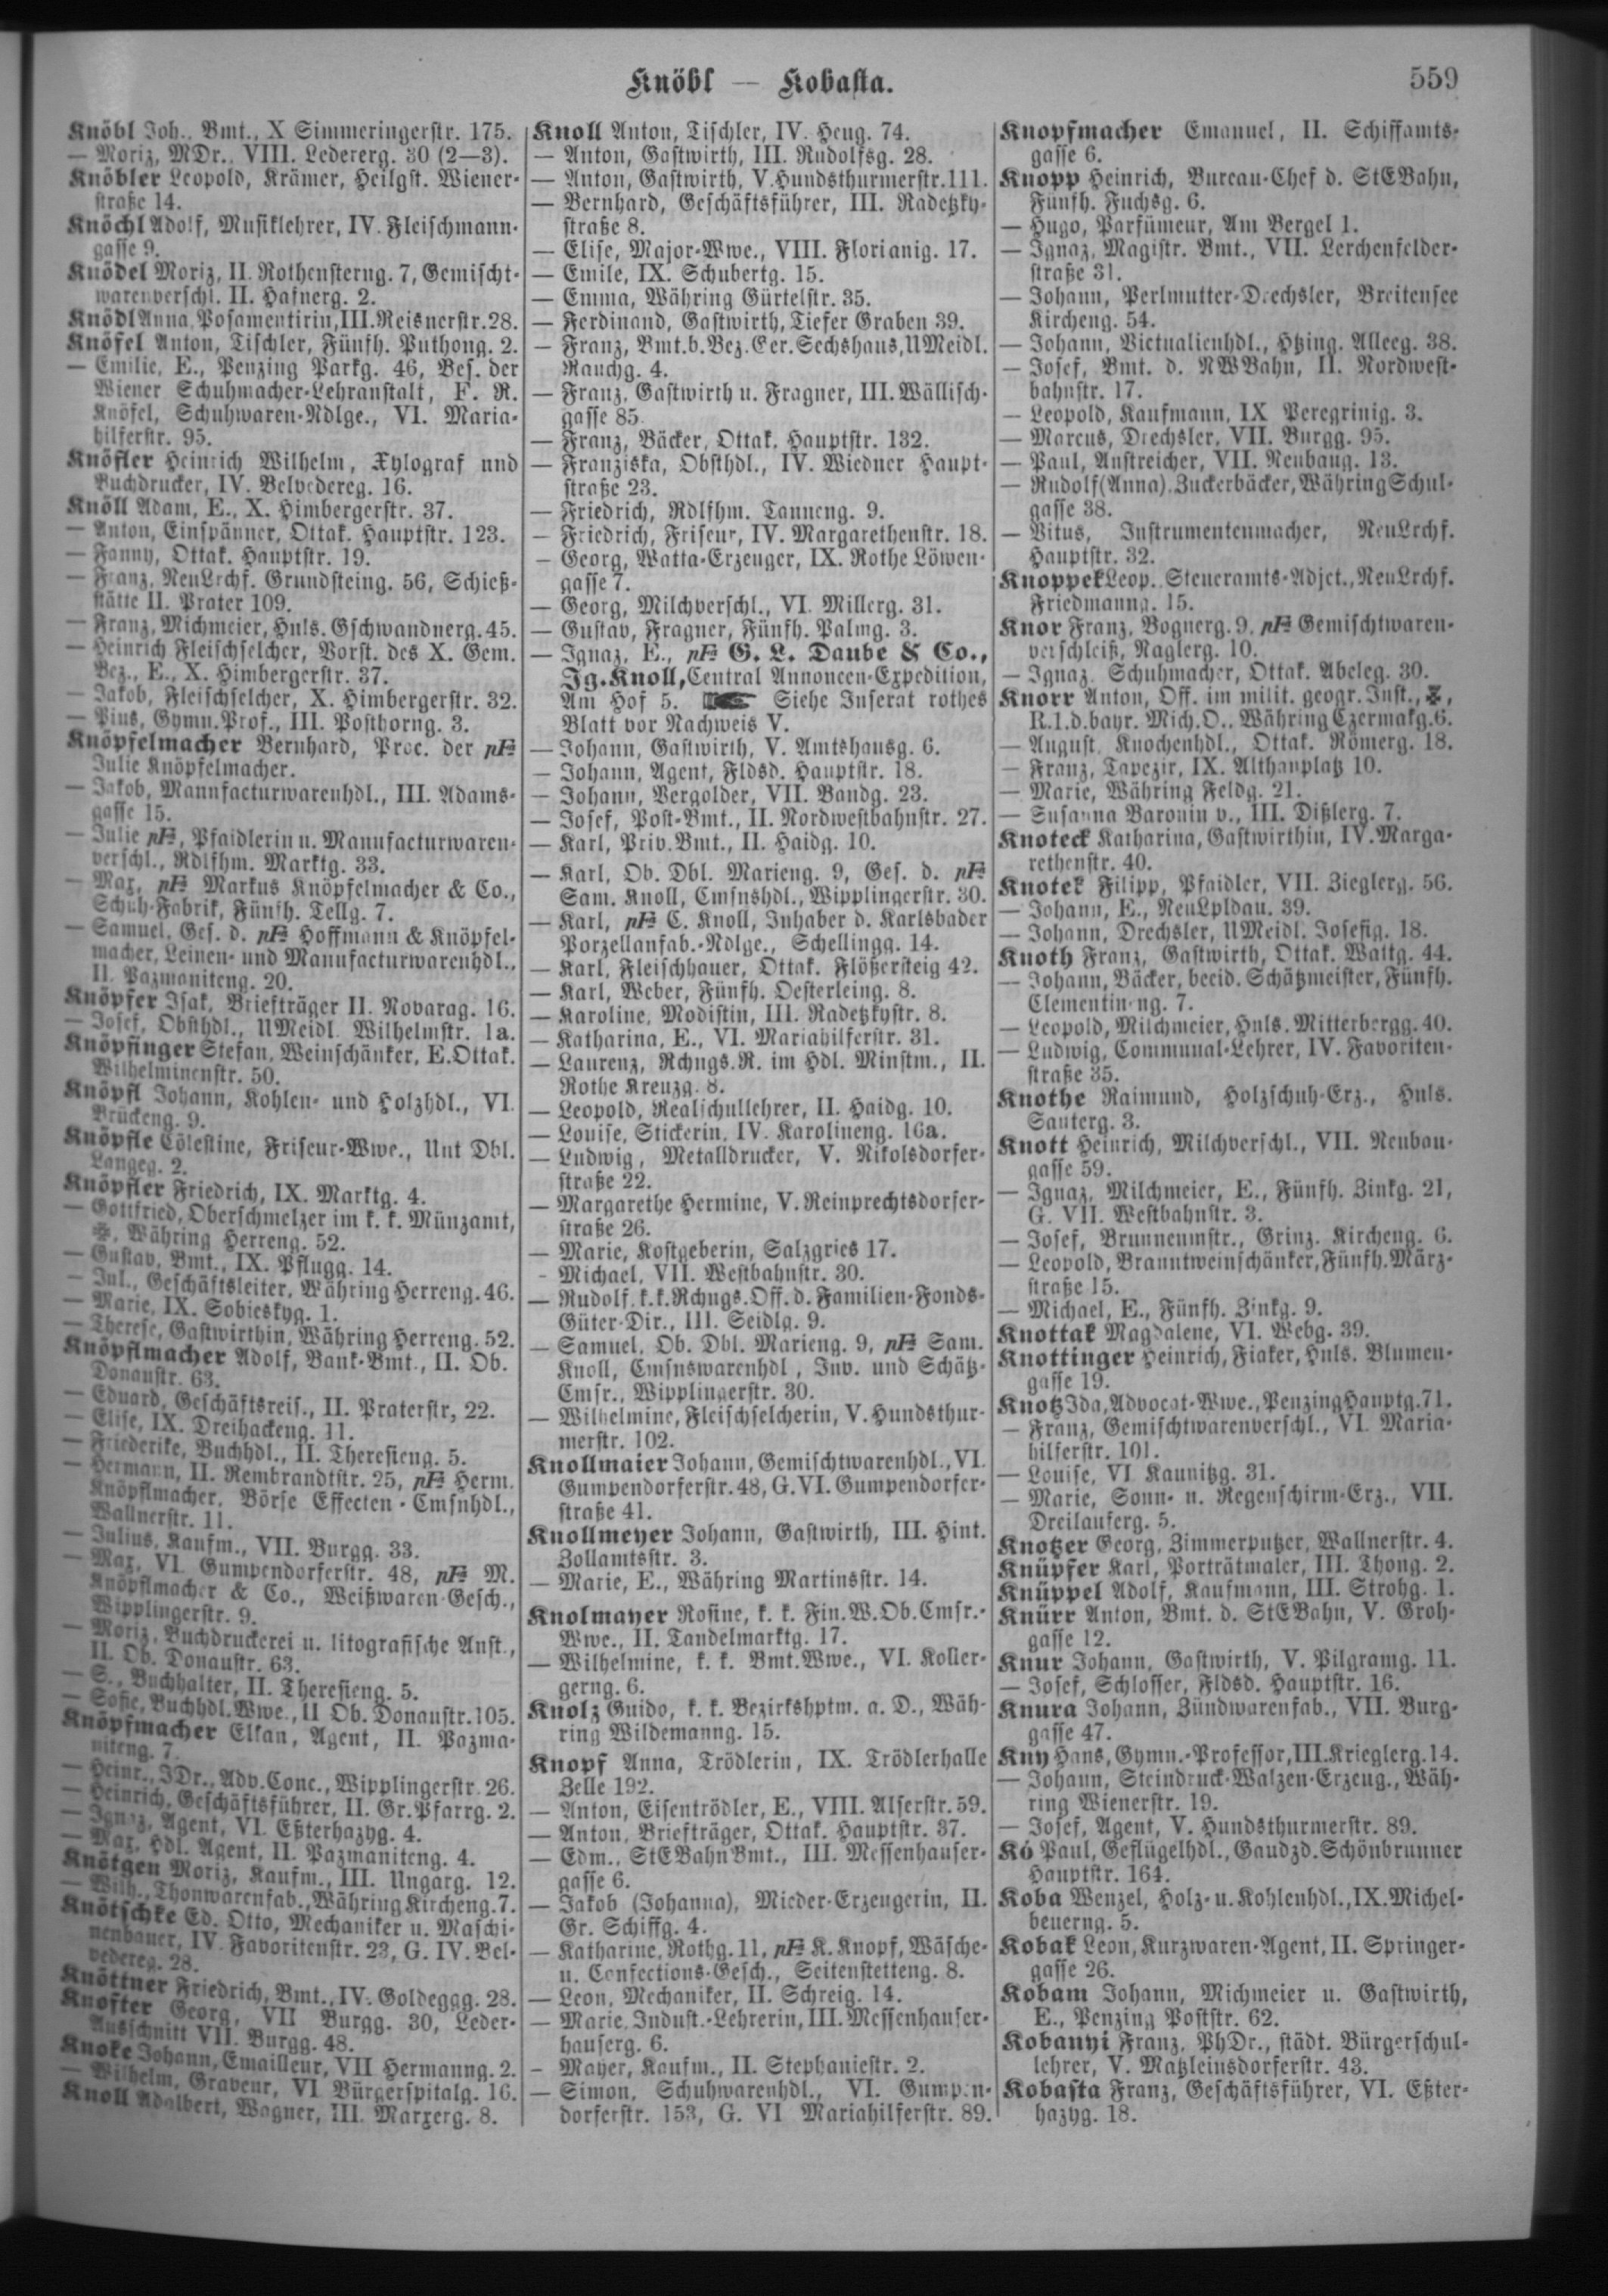 Knöbl — Kobasta.
559
Knöbl Joh., Bmt., X Simmeringerstr. 175.
— Moriz, MDr., VIII. Ledererg. 30 (2—3).
Knöbler Leopold, Krämer, Heilgst. Wiener-
straße 14.
Knöchl Adolf, Musiklehrer, IV. Fleischmann-
gasse 9.
Knödel Moriz, II. Rothensterng. 7, Gemischt-
warenverschl. II. Hafnerg. 2.
Knödl Anna, Posamentirin, III. Reisnerstr. 28.
Knöfel Anton, Tischler, Fünfh. Puthong. 2.
— Emilie, E., Penzing Parkg. 46, Bes. der
Wiener Schuhmacher-Lehranstalt, F. R.
Knöfel, Schuhwaren-Ndlge., VI. Maria-
hilferstr. 95.
Knöfler Heinrich Wilhelm, Xylograf und
Buchdrucker, IV. Belvedereg. 16.
Knöll Adam, E., X. Himbergerstr. 37.
— Anton, Einspänner, Ottak. Hauptstr. 123.
— Fanny, Ottak. Hauptstr. 19.
— Franz, NeuLrchf. Grundsteing. 56, Schieß-
stätte II. Prater 109.
— Franz, Michmeier, Hnls. Gschwandnerg. 45.
— Heinrich Fleischselcher, Vorst. des X. Gem.
Bez., E., X. Himbergerstr. 37.
— Jakob, Fleischselcher, X. Himbergerstr. 32.
— Pius, Gymn. Prof., III. Posthorng. 3.
Knöpfelmacher Bernhard, Proc. der pF
Julie Knöpfelmacher.
— Jakob, Manufacturwarenhdl., III. Adams-
gasse 15.
— Julie pF, Pfaidlerin u. Manufacturwaren-
verschl., Rdlfhm. Marktg. 33.
— Max, pF Markus Knöpfelmacher & Co.,
Schuh-Fabrik, Fünfh. Tellg. 7.
— Samuel, Ges. d. pF Hoffmann & Knöpfel-
macher, Leinen- und Manufacturwarenhdl.,
II. Pazmaniteng. 20.
Knöpfer Isak, Briefträger II. Novarag. 16.
— Josef, Obsthdl., UMeidl. Wilhelmstr. 1a.
Knöpfinger Stefan, Weinschänker, E. Ottak.
Wilhelminenstr. 50.
Knöpfl Johann, Kohlen- und Holzhdl., VI.
Brückeng. 9.
Knöpfle Cölestine, Friseur-Wwe., Unt Dbl.
Langeg. 2.
Knöpfler Friedrich, IX. Marktg. 4.
— Gottfried, Oberschmelzer im k. k. Münzamt,
Währing Herreng. 52.
— Gustav, Bmt., IX. Pflugg. 14.
— Jul., Geschäftsleiter, Währing Herreng. 46.
— Marie, IX. Sobieskyg. 1.
— Therese, Gastwirthin, Währing Herreng. 52.
Knöpflmacher Adolf, Bank-Bmt., II. Ob.
Donaustr. 63.
— Eduard, Geschäftsreis., II. Praterstr, 22.
— Elise, IX. Dreihackeng. 11.
— Friederike, Buchhdl., II. Theresieng. 5.
— Hermann, II. Rembrandtstr. 25, pF Herm.
Knöpflmacher, Börse Effecten-Cmsnhdl.,
Wallnerstr. 11.
— Julius, Kaufm., VII. Burgg. 33.
— Max, VI. Gumpendorferstr. 48, pF M.
Knöpflmacher & Co., Weißwaren-Gesch.,
Wipplingerstr. 9.
— Moriz, Buchdruckerei u. litografische Anst.,
II. Ob. Donaustr. 63.
— S., Buchhalter, II. Theresieng. 5.
— Sofie, Buchhdl. Wwe., II Ob. Donaustr. 105.
Knöpfmacher Elkan, Agent, II. Pazma-
niteng. 7.
— Heinr., JDr., Adv. Conc., Wipplingerstr. 26.
— Heinrich, Geschäftsführer, II. Gr. Pfarrg. 2.
— Ignaz, Agent, VI. Eßterhazyg. 4.
— Max, Hdl. Agent, II. Pazmaniteng. 4.
Knötgen Moriz, Kaufm., III. Ungarg. 12.
— Wilh., Thonwarenfab., Währing Kircheng. 7.
Knötschke Ed. Otto, Mechaniker u. Maschi-
nenbauer, IV. Favoritenstr. 23, G. IV. Bel-
vedereg. 28.
Knöttner Friedrich, Bmt., IV. Goldeggg. 28.
Knofter Georg, VII Burgg. 30, Leder-
Ausschnitt VII. Burgg. 48.
Knoke Johann, Emailleur, VII Hermanng. 2.
— Wilhelm, Graveur, VI Bürgerspitalg. 16.
Knoll Adalbert, Wagner, III. Marxerg. 8.
Knoll Anton, Tischler, IV. Heug. 74.
— Anton, Gastwirth, III. Rudolfsg. 28.
— Anton, Gastwirth, V. Hundsthurmerstr. 111.
— Bernhard, Geschäftsführer, III. Radetzky-
straße 8.
— Elise, Major-Wwe., VIII. Florianig. 17.
— Emile, IX. Schubertg. 15.
— Emma, Währing Gürtelstr. 35.
— Ferdinand, Gastwirth, Tiefer Graben 39.
— Franz, Bmt. b. Bez. Ger. Sechshaus, UMeidl.
Rauchg. 4.
— Franz, Gastwirth u. Fragner, III. Wällisch-
gasse 85.
— Franz, Bäcker, Ottak. Hauptstr. 132.
— Franziska, Obsthdl., IV. Wiedner Haupt-
straße 23.
— Friedrich, Rdlfhm. Tanneng. 9.
— Friedrich, Friseur, IV. Margarethenstr. 18.
— Georg, Watta-Erzeuger, IX. Rothe Löwen-
gasse 7.
— Georg, Milchverschl., VI. Millerg. 31.
— Gustav, Fragner, Fünfh. Palmg. 3.
— Ignaz, E., pF G. L. Daube & Co.,
Jg. Knoll, Central Annoncen-Expedition,
Am Hof 5. Siehe Inserat rothes
Blatt vor Nachweis V.
— Johann, Gastwirth, V. Amtshausg. 6.
— Johann, Agent, Fldsd. Hauptstr. 18.
— Johann, Vergolder, VII. Bandg. 23.
— Josef, Post-Bmt., II. Nordwestbahnstr. 27.
— Karl, Priv. Bmt., II. Haidg. 10.
— Karl, Ob. Dbl. Marieng. 9, Ges. d. pF
Sam. Knoll, Cmsnshdl., Wipplingerstr. 30.
— Karl, pF C. Knoll, Inhaber d. Karlsbader
Porzellanfab.-Ndlge., Schellingg. 14.
— Karl, Fleischhauer, Ottak. Flößersteig 42.
— Karl, Weber, Fünfh. Oesterleing. 8.
— Karoline, Modistin, III. Radetzkystr. 8.
— Katharina, E., VI. Mariahilferstr. 31.
— Laurenz, Rchngs. R. im Hdl. Minstm., II.
Rothe Kreuzg. 8.
— Leopold, Realschullehrer, II. Haidg. 10.
— Louise, Stickerin, IV. Karolineng. 16a.
— Ludwig, Metalldrucker, V. Nikolsdorfer-
straße 22.
— Margarethe Hermine, V. Reinprechtsdorfer-
straße 26.
— Marie, Kostgeberin, Salzgries 17.
- Michael, VII. Westbahnstr. 30.
— Rudolf, k. k. Rchngs. Off. d. Familien-Fonds-
Güter-Dir., III. Seidlg. 9.
— Samuel, Ob. Dbl. Marieng. 9, pF Sam.
Knoll, Cmsnswarenhdl, Inv. und Schätz-
Cmsr., Wipplingerstr. 30.
— Wilhelmine, Fleischselcherin, V. Hundsthur-
merstr. 102.
Knollmaier Johann, Gemischtwarenhdl., VI.
Gumpendorferstr. 48, G. VI. Gumpendorfer-
straße 41.
Knollmeyer Johann, Gastwirth, III. Hint.
Zollamtsstr. 3.
— Marie, E., Währing Martinsstr. 14.
Knolmayer Rosine, k. k. Fin. W. Ob. Cmsr.-
Wwe., II. Tandelmarktg. 17.
— Wilhelmine, k. k. Bmt. Wwe., VI. Koller-
gerng. 6.
Knolz Guido, k. k. Bezirkshptm. a. D., Wäh-
ring Wildemanng. 15.
Knopf Anna, Trödlerin, IX. Trödlerhalle
Zelle 192.
— Anton, Eisentrödler, E., VIII. Alserstr. 59.
— Anton, Briefträger, Ottak. Hauptstr. 37.
— Edm., StEBahn Bmt., III. Messenhauser-
gasse 6.
— Jakob (Johanna), Mieder-Erzeugerin, II.
Gr. Schiffg. 4.
— Katharine, Rothg. 11, pF K. Knopf, Wäsche-
u. Confections-Gesch., Seitenstetteng. 8.
— Leon, Mechaniker, II. Schreig. 14.
— Marie, Indust.-Lehrerin, III. Messenhauser-
hauserg. 6.
- Mayer, Kaufm., II. Stephaniestr. 2.
— Simon, Schuhwarenhdl., VI. Gumpen-
dorferstr. 153, G. VI Mariahilferstr. 89.
Knopfmacher Emanuel, II. Schiffamts-
gasse 6.
Knopp Heinrich, Bureau-Chef d. StEBahn,
Fünfh. Fuchsg. 6.
— Hugo, Parfümeur, Am Bergel 1.
— Ignaz, Magistr. Bmt., VII. Lerchenfelder-
straße 31.
— Johann, Perlmutter-Drechsler, Breitensee
Kircheng. 54.
— Johann, Victualienhdl., Htzing. Alleeg. 38.
— Josef, Bmt. d. NWBahn, II. Nordwest-
bahnstr. 17.
— Leopold, Kaufmann, IX Peregrinig. 3.
— Marcus, Drechsler, VII. Burgg. 95.
— Paul, Anstreicher, VII. Neubaug. 13.
— Rudolf (Anna), Zuckerbäcker, Währing Schul-
gasse 38.
— Vitus, Instrumentenmacher, NeuLrchf.
Hauptstr. 32.
Knoppek Leop. Steueramts-Adjct., NeuLrchf.
Friedmanng. 15.
Knor Franz, Bognerg. 9, pF Gemischtwaren-
verschleiß, Naglerg. 10.
— Ignaz, Schuhmacher, Ottak. Abeleg. 30.
Knorr Anton, Off. im milit. geogr. Inst.,
R. 1. d. bayr. Mich. O., Währing Czermakg. 6.
— August, Knochenhdl., Ottak. Römerg. 18.
— Franz, Tapezir, IX. Althanplatz 10.
— Marie, Währing Feldg. 21.
— Susanna Baronin v., III. Dißlerg. 7.
Knoteck Katharina, Gastwirthin, IV. Marga-
rethenstr. 40.
Knotek Filipp, Pfaidler, VII. Zieglerg. 56.
— Johann, E., NeuLpldau. 39.
— Johann, Drechsler, UMeidl. Josefig. 18.
Knoth Franz, Gastwirth, Ottak. Wattg. 44.
— Johann, Bäcker, beeid. Schätzmeister, Fünfh.
Clementineng. 7.
— Leopold, Milchmeier, Hnls. Mitterbergg. 40.
— Ludwig, Communal-Lehrer, IV. Favoriten-
straße 35.
Knothe Raimund, Holzschuh-Erz., Hnls.
Santerg. 3.
Knott Heinrich, Milchverschl., VII. Neubau-
gasse 59.
— Ignaz, Milchmeier, E., Fünfh. Zinkg. 21,
G. VII. Westbahnstr. 3.
— Josef, Brunnenmstr., Grinz. Kircheng. 6.
— Leopold, Branntweinschänker, Fünfh. März-
straße 15.
— Michael, E., Fünfh. Zinkg. 9.
Knottak Magdalene, VI. Webg. 39.
Knottinger Heinrich, Fiaker, Hnls. Blumen-
gasse 19.
Knotz Ida, Advocat-Wwe., Penzing Hauptg. 71.
— Franz, Gemischtwarenverschl., VI. Maria-
hilferstr. 101.
— Louise, VI. Kaunitzg. 31.
— Marie, Sonn- u. Regenschirm-Erz., VII.
Dreilauferg. 5.
Knotzer Georg, Zimmerputzer, Wallnerstr. 4.
Knüpfer Karl, Porträtmaler, III. Thong. 2.
Knüppel Adolf, Kaufmann, III. Strohg. 1.
Knürr Anton, Bmt. d. StEBahn, V. Groh-
gasse 12.
Knur Johann, Gastwirth, V. Pilgramg. 11.
— Josef, Schlosser, Fldsd. Hauptstr. 16.
Knura Johann, Zündwarenfab., VII. Burg-
gasse 47.
Kny Hans, Gymn.-Professor, III. Krieglerg. 14.
— Johann, Steindruck-Walzen-Erzeug., Wäh-
ring Wienerstr. 19.
— Josef, Agent, V. Hundsthurmerstr. 89.
Kó Paul, Geflügelhdl., Gaudzd. Schönbrunner
Hauptstr. 164.
Koba Wenzel, Holz- u. Kohlenhdl., IX. Michel-
beuerng. 5.
Kobak Leon, Kurzwaren-Agent, II. Springer-
gasse 26.
Kobam Johann, Michmeier u. Gastwirth,
E., Penzing Poststr. 62.
Kobanyi Franz, PhDr., städt. Bürgerschul-
lehrer, V. Matzleinsdorferstr. 43.
Kobasta Franz, Geschäftsführer, VI. Eßter-
hazyg. 18.